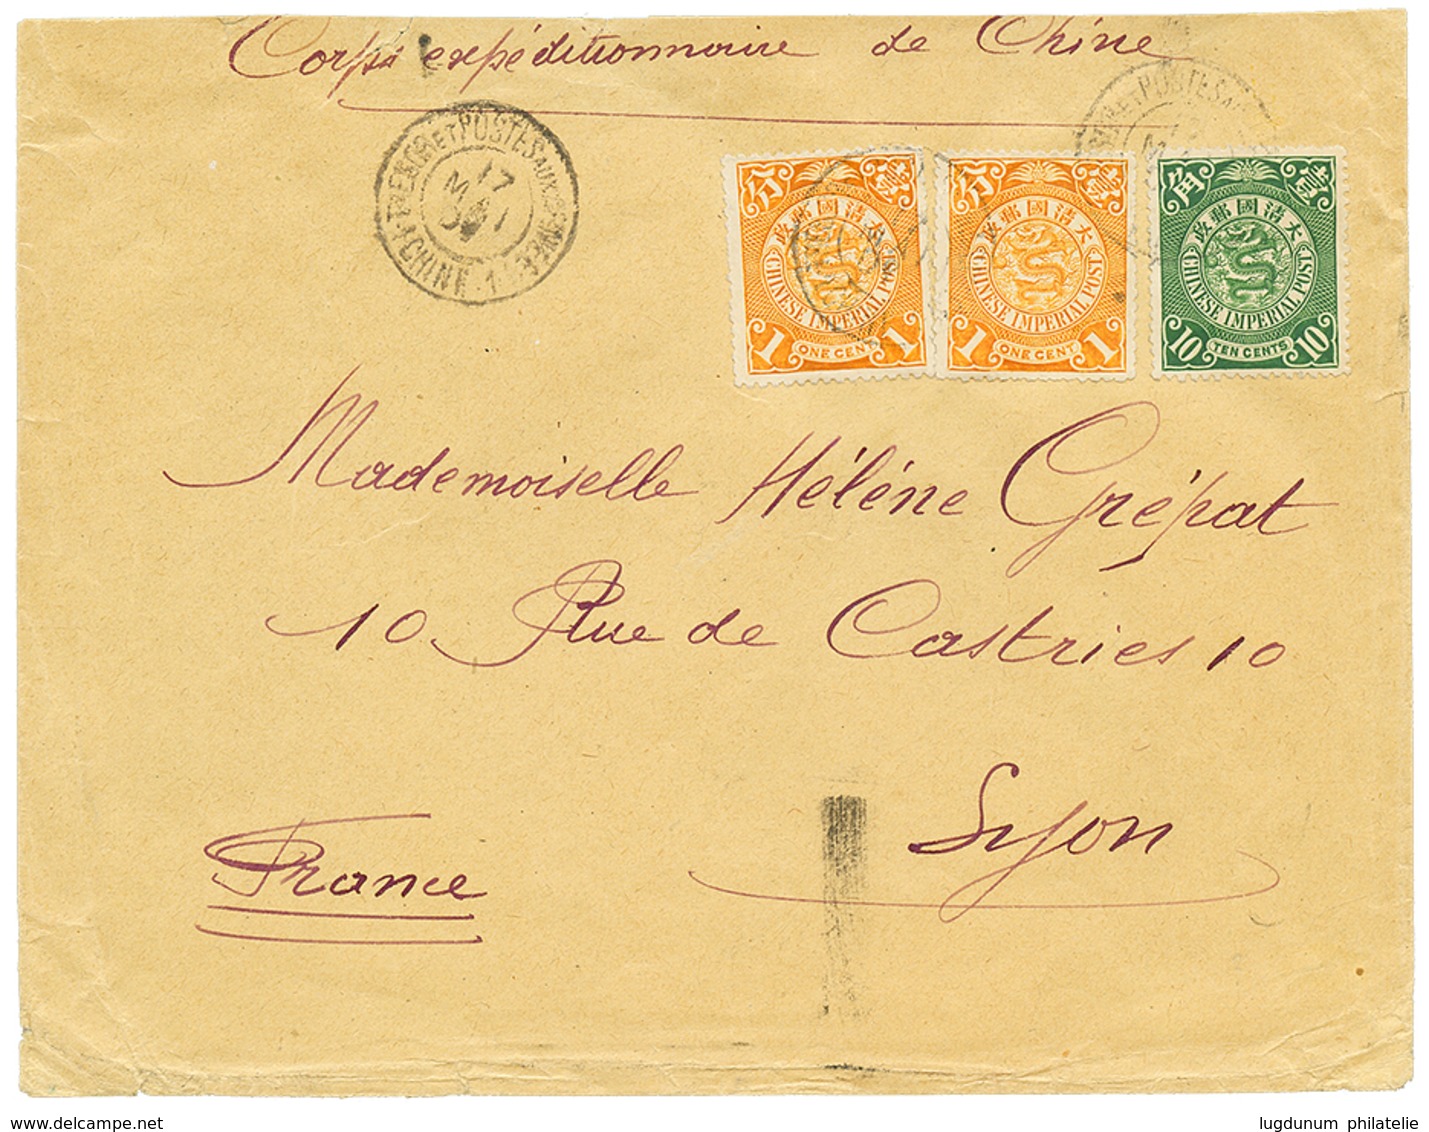 Corps expéditionnaire de Chine
TRESOR ET POSTES AUX ARMEES
17
MAI
CHINE · 1
ET POSTES AUX
分 壹
大清國郵政
CHINESE IMPERIAL POST
1 ONE CENT 1
分 壹
大清國郵政
CHINESE IMPERIAL POST
1 ONE CENT 1
角 壹
大清國郵政
CHINESE IMPERIAL POST
10 TEN CENTS 10
Mademoiselle Hélène Grépat
10 Rue de Castries 10
Lyon
France
www.delcampe.net
lugdunum philatelie